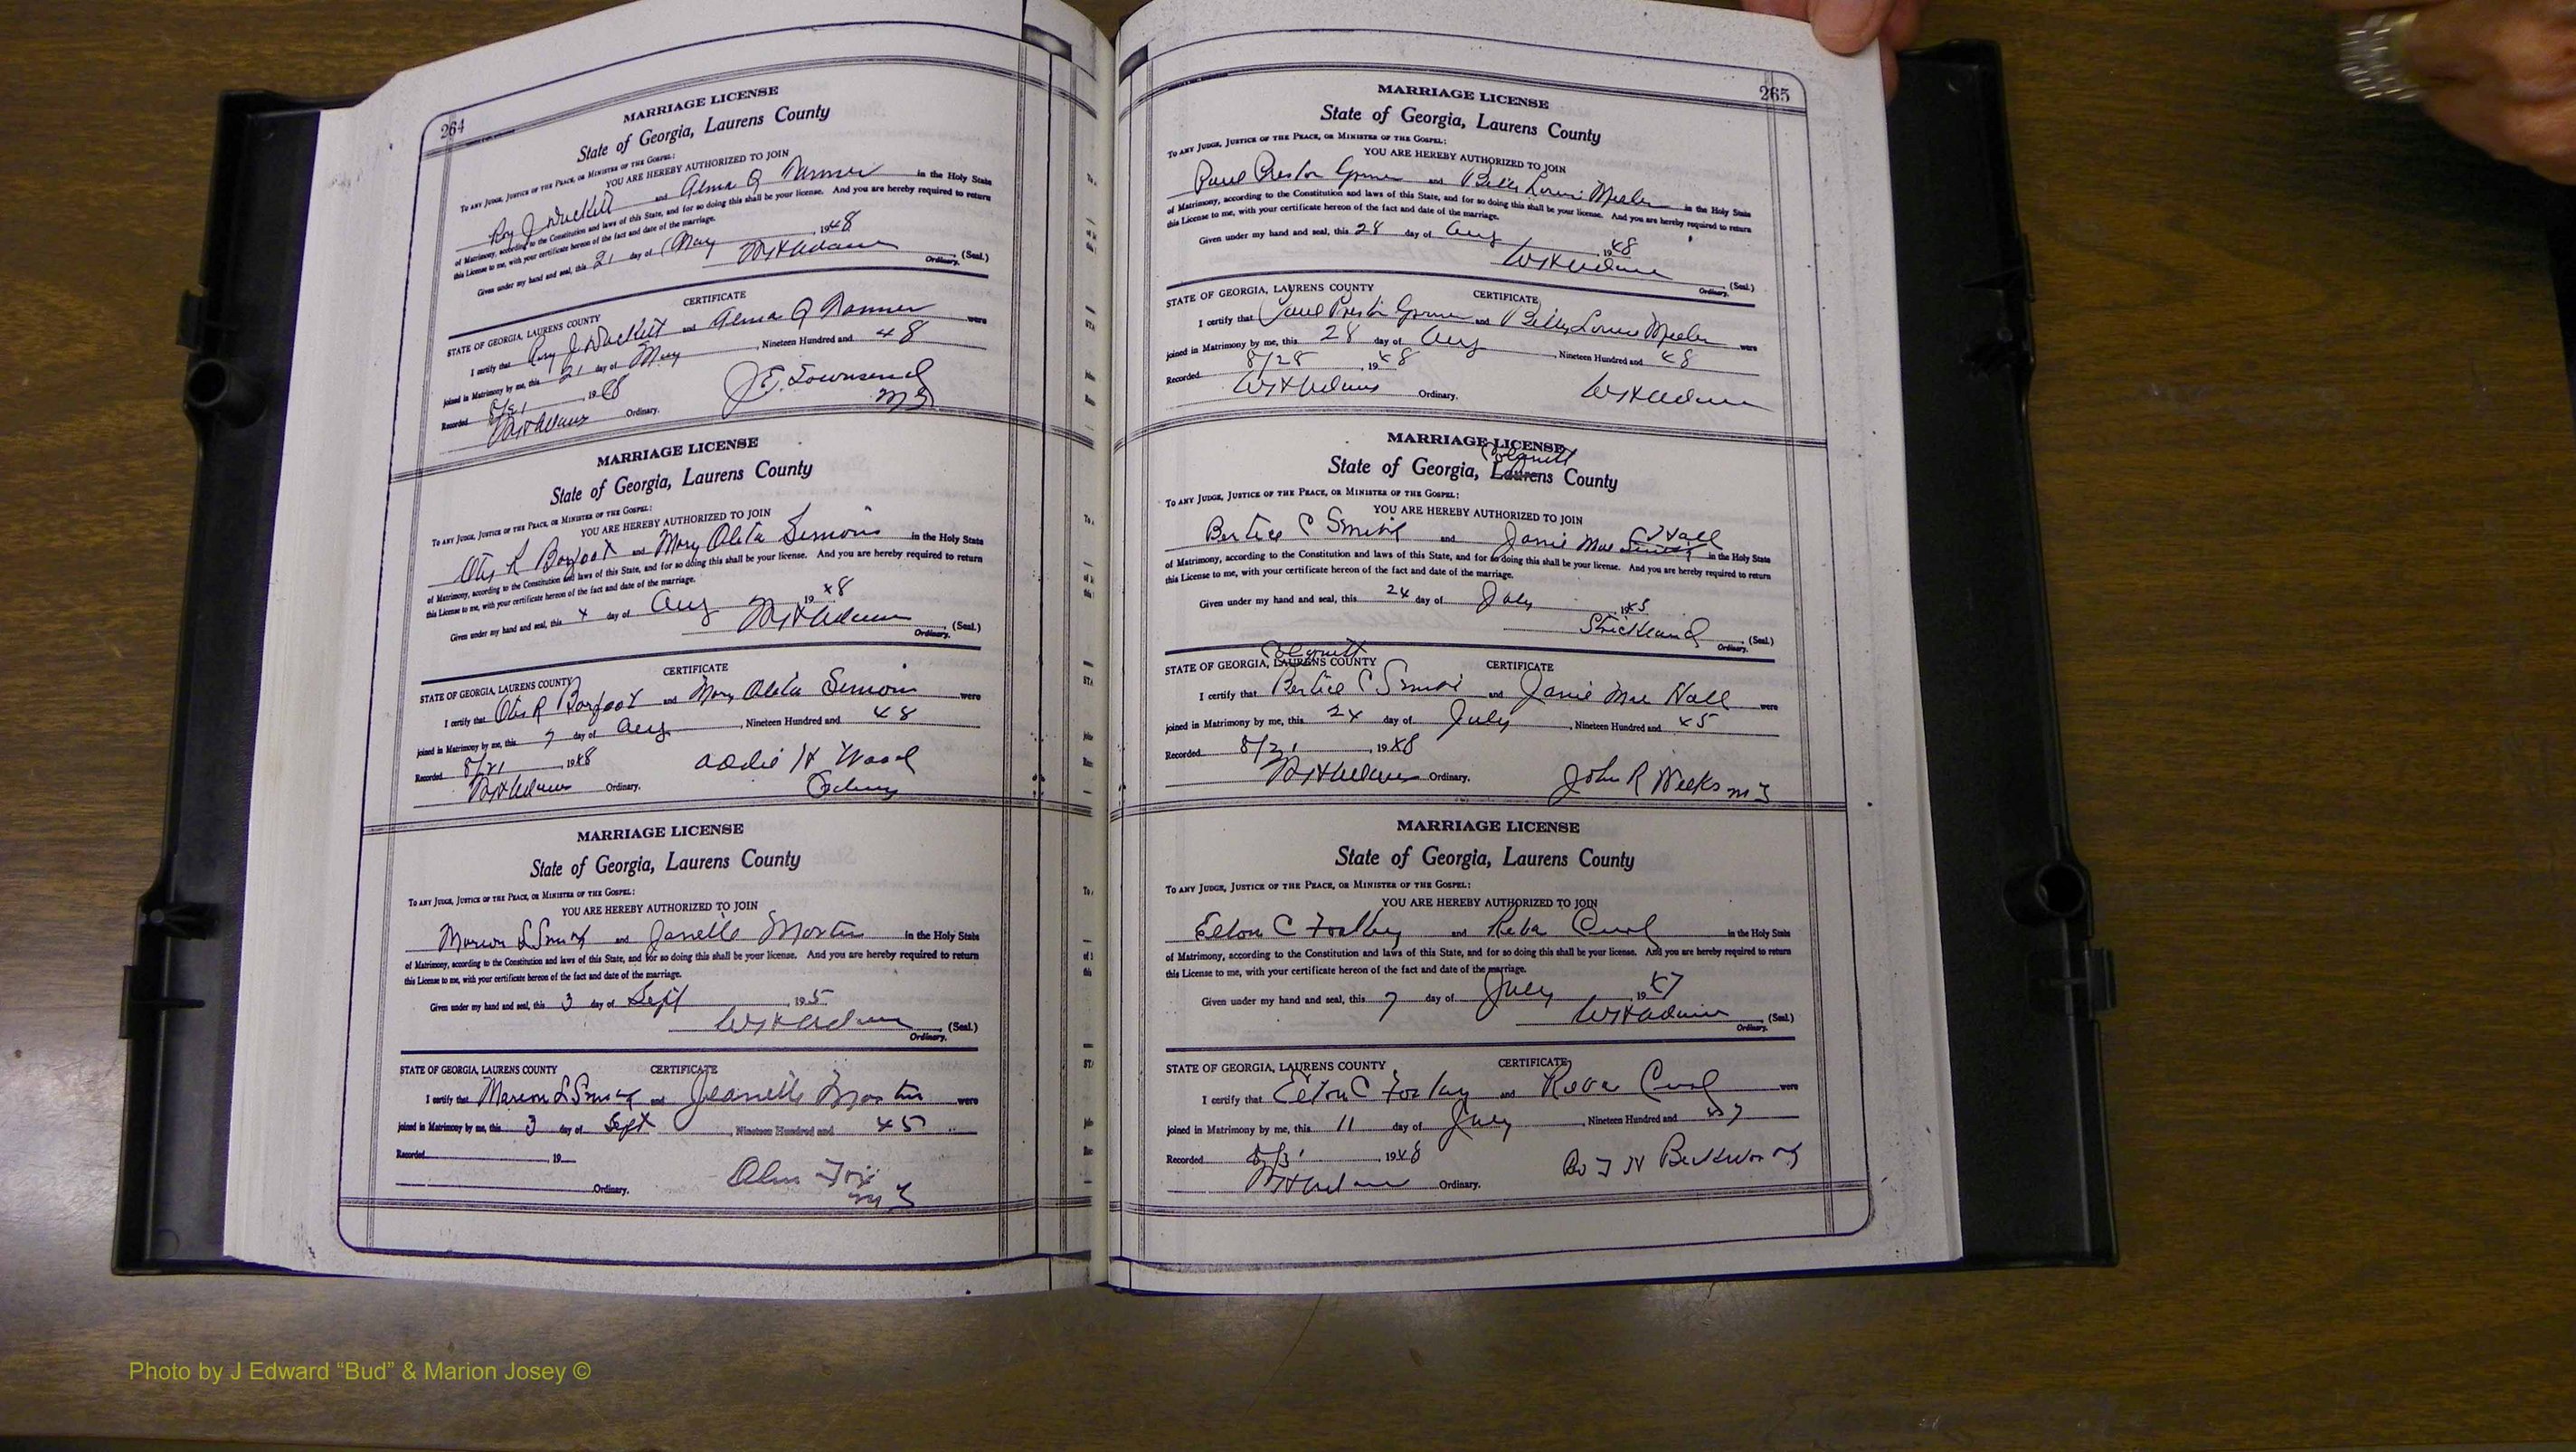 264
MARRIAGE LICENSE
State of Georgia, Laurens County
TO ANY JUDGE, JUSTICE OF THE PEACE, OR MINISTER OF THE GOSPEL:
YOU ARE HEREBY AUTHORIZED TO JOIN
Roy J Duckett and Alma Q in the Holy State
of Matrimony, according to the Constitution and laws of this State, and for so doing this shall be your license. And you are hereby required to return
this License to me, with your certificate hereon of the fact and date of the marriage.
Given under my hand and seal, this 21 day of May , 1948
WH Adams (Seal.)
Ordinary.
CERTIFICATE
STATE OF GEORGIA, LAURENS COUNTY
I certify that Roy J Duckett and Alma Q were
joined in Matrimony by me, this 21 day of May , Nineteen Hundred and 48
Recorded , 1948
WH Adams Ordinary.
J.E. Townsend
MG
MARRIAGE LICENSE
State of Georgia, Laurens County
TO ANY JUDGE, JUSTICE OF THE PEACE, OR MINISTER OF THE GOSPEL:
YOU ARE HEREBY AUTHORIZED TO JOIN
Otis R Barfoot and Mary Oleta in the Holy State
of Matrimony, according to the Constitution and laws of this State, and for so doing this shall be your license. And you are hereby required to return
this License to me, with your certificate hereon of the fact and date of the marriage.
Given under my hand and seal, this 4 day of Aug 1948
WH Adams (Seal.)
Ordinary.
CERTIFICATE
STATE OF GEORGIA, LAURENS COUNTY
I certify that Otis R Barfoot and Mary Oleta were
joined in Matrimony by me, this 7 day of Aug , Nineteen Hundred and 48
Recorded 8/21 , 1948
WH Adams Ordinary.
Addie H Wood
Ordinary
MARRIAGE LICENSE
State of Georgia, Laurens County
TO ANY JUDGE, JUSTICE OF THE PEACE, OR MINISTER OF THE GOSPEL:
YOU ARE HEREBY AUTHORIZED TO JOIN
Marion L Smith and Janelle Martin in the Holy State
of Matrimony, according to the Constitution and laws of this State, and for so doing this shall be your license. And you are hereby required to return
this License to me, with your certificate hereon of the fact and date of the marriage.
Given under my hand and seal, this 3 day of Sept , 195
WH Adams (Seal.)
Ordinary.
STATE OF GEORGIA, LAURENS COUNTY CERTIFICATE
I certify that Marion L Smith and Jeanelle Martin were
joined in Matrimony by me, this 3 day of Sept , Nineteen Hundred and 45
Recorded , 19
Ordinary.
MG
265
MARRIAGE LICENSE
State of Georgia, Laurens County
TO ANY JUDGE, JUSTICE OF THE PEACE, OR MINISTER OF THE GOSPEL:
YOU ARE HEREBY AUTHORIZED TO JOIN
Paul Preston and Betty Louise in the Holy State
of Matrimony, according to the Constitution and laws of this State, and for so doing this shall be your license. And you are hereby required to return
this License to me, with your certificate hereon of the fact and date of the marriage.
Given under my hand and seal, this 28 day of Aug 1948
WH Adams (Seal.)
Ordinary.
STATE OF GEORGIA, LAURENS COUNTY CERTIFICATE
I certify that Paul Preston and Betty Louise were
joined in Matrimony by me, this 28 day of Aug , Nineteen Hundred and 48
Recorded 8/28 , 1948
WH Adams Ordinary. WH Adams
MARRIAGE LICENSE
Colquitt
State of Georgia, Laurens County
TO ANY JUDGE, JUSTICE OF THE PEACE, OR MINISTER OF THE GOSPEL:
YOU ARE HEREBY AUTHORIZED TO JOIN
Bertice C Smith and Janie Mae Hall in the Holy State
of Matrimony, according to the Constitution and laws of this State, and for so doing this shall be your license. And you are hereby required to return
this License to me, with your certificate hereon of the fact and date of the marriage.
Given under my hand and seal, this 24 day of July , 1945
Strickland (Seal.)
Ordinary.
Colquitt
STATE OF GEORGIA, LAURENS COUNTY CERTIFICATE
I certify that Bertice C Smith and Janie Mae Hall were
joined in Matrimony by me, this 24 day of July , Nineteen Hundred and 45
Recorded , 1948
WH Adams Ordinary. John R Weeks MG
MARRIAGE LICENSE
State of Georgia, Laurens County
TO ANY JUDGE, JUSTICE OF THE PEACE, OR MINISTER OF THE GOSPEL:
YOU ARE HEREBY AUTHORIZED TO JOIN
Elton C and Reba Curl in the Holy State
of Matrimony, according to the Constitution and laws of this State, and for so doing this shall be your license. And you are hereby required to return
this License to me, with your certificate hereon of the fact and date of the marriage.
Given under my hand and seal, this 7 day of July , 1947
WH Adams (Seal.)
Ordinary.
STATE OF GEORGIA, LAURENS COUNTY CERTIFICATE
I certify that Elton C and Reba Curl were
joined in Matrimony by me, this 11 day of July , Nineteen Hundred and 47
Recorded , 1948
WH Adams Ordinary.
Photo by J Edward “Bud” & Marion Josey ©